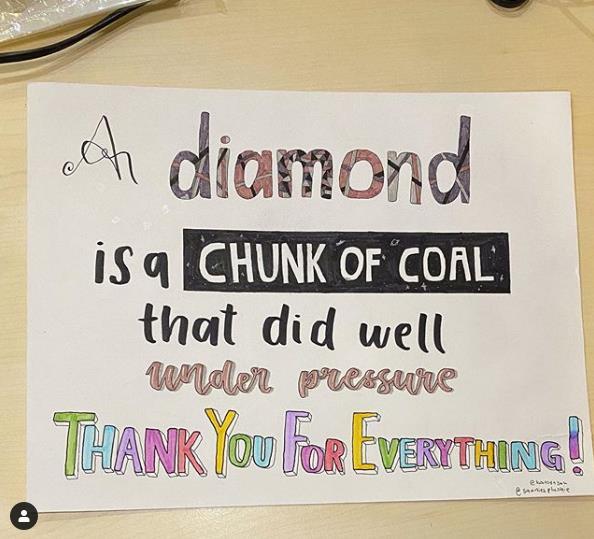 A diamond
is a CHUNK OF COAL
that did well
under pressure
THANK YOU FOR EVERYTHING!